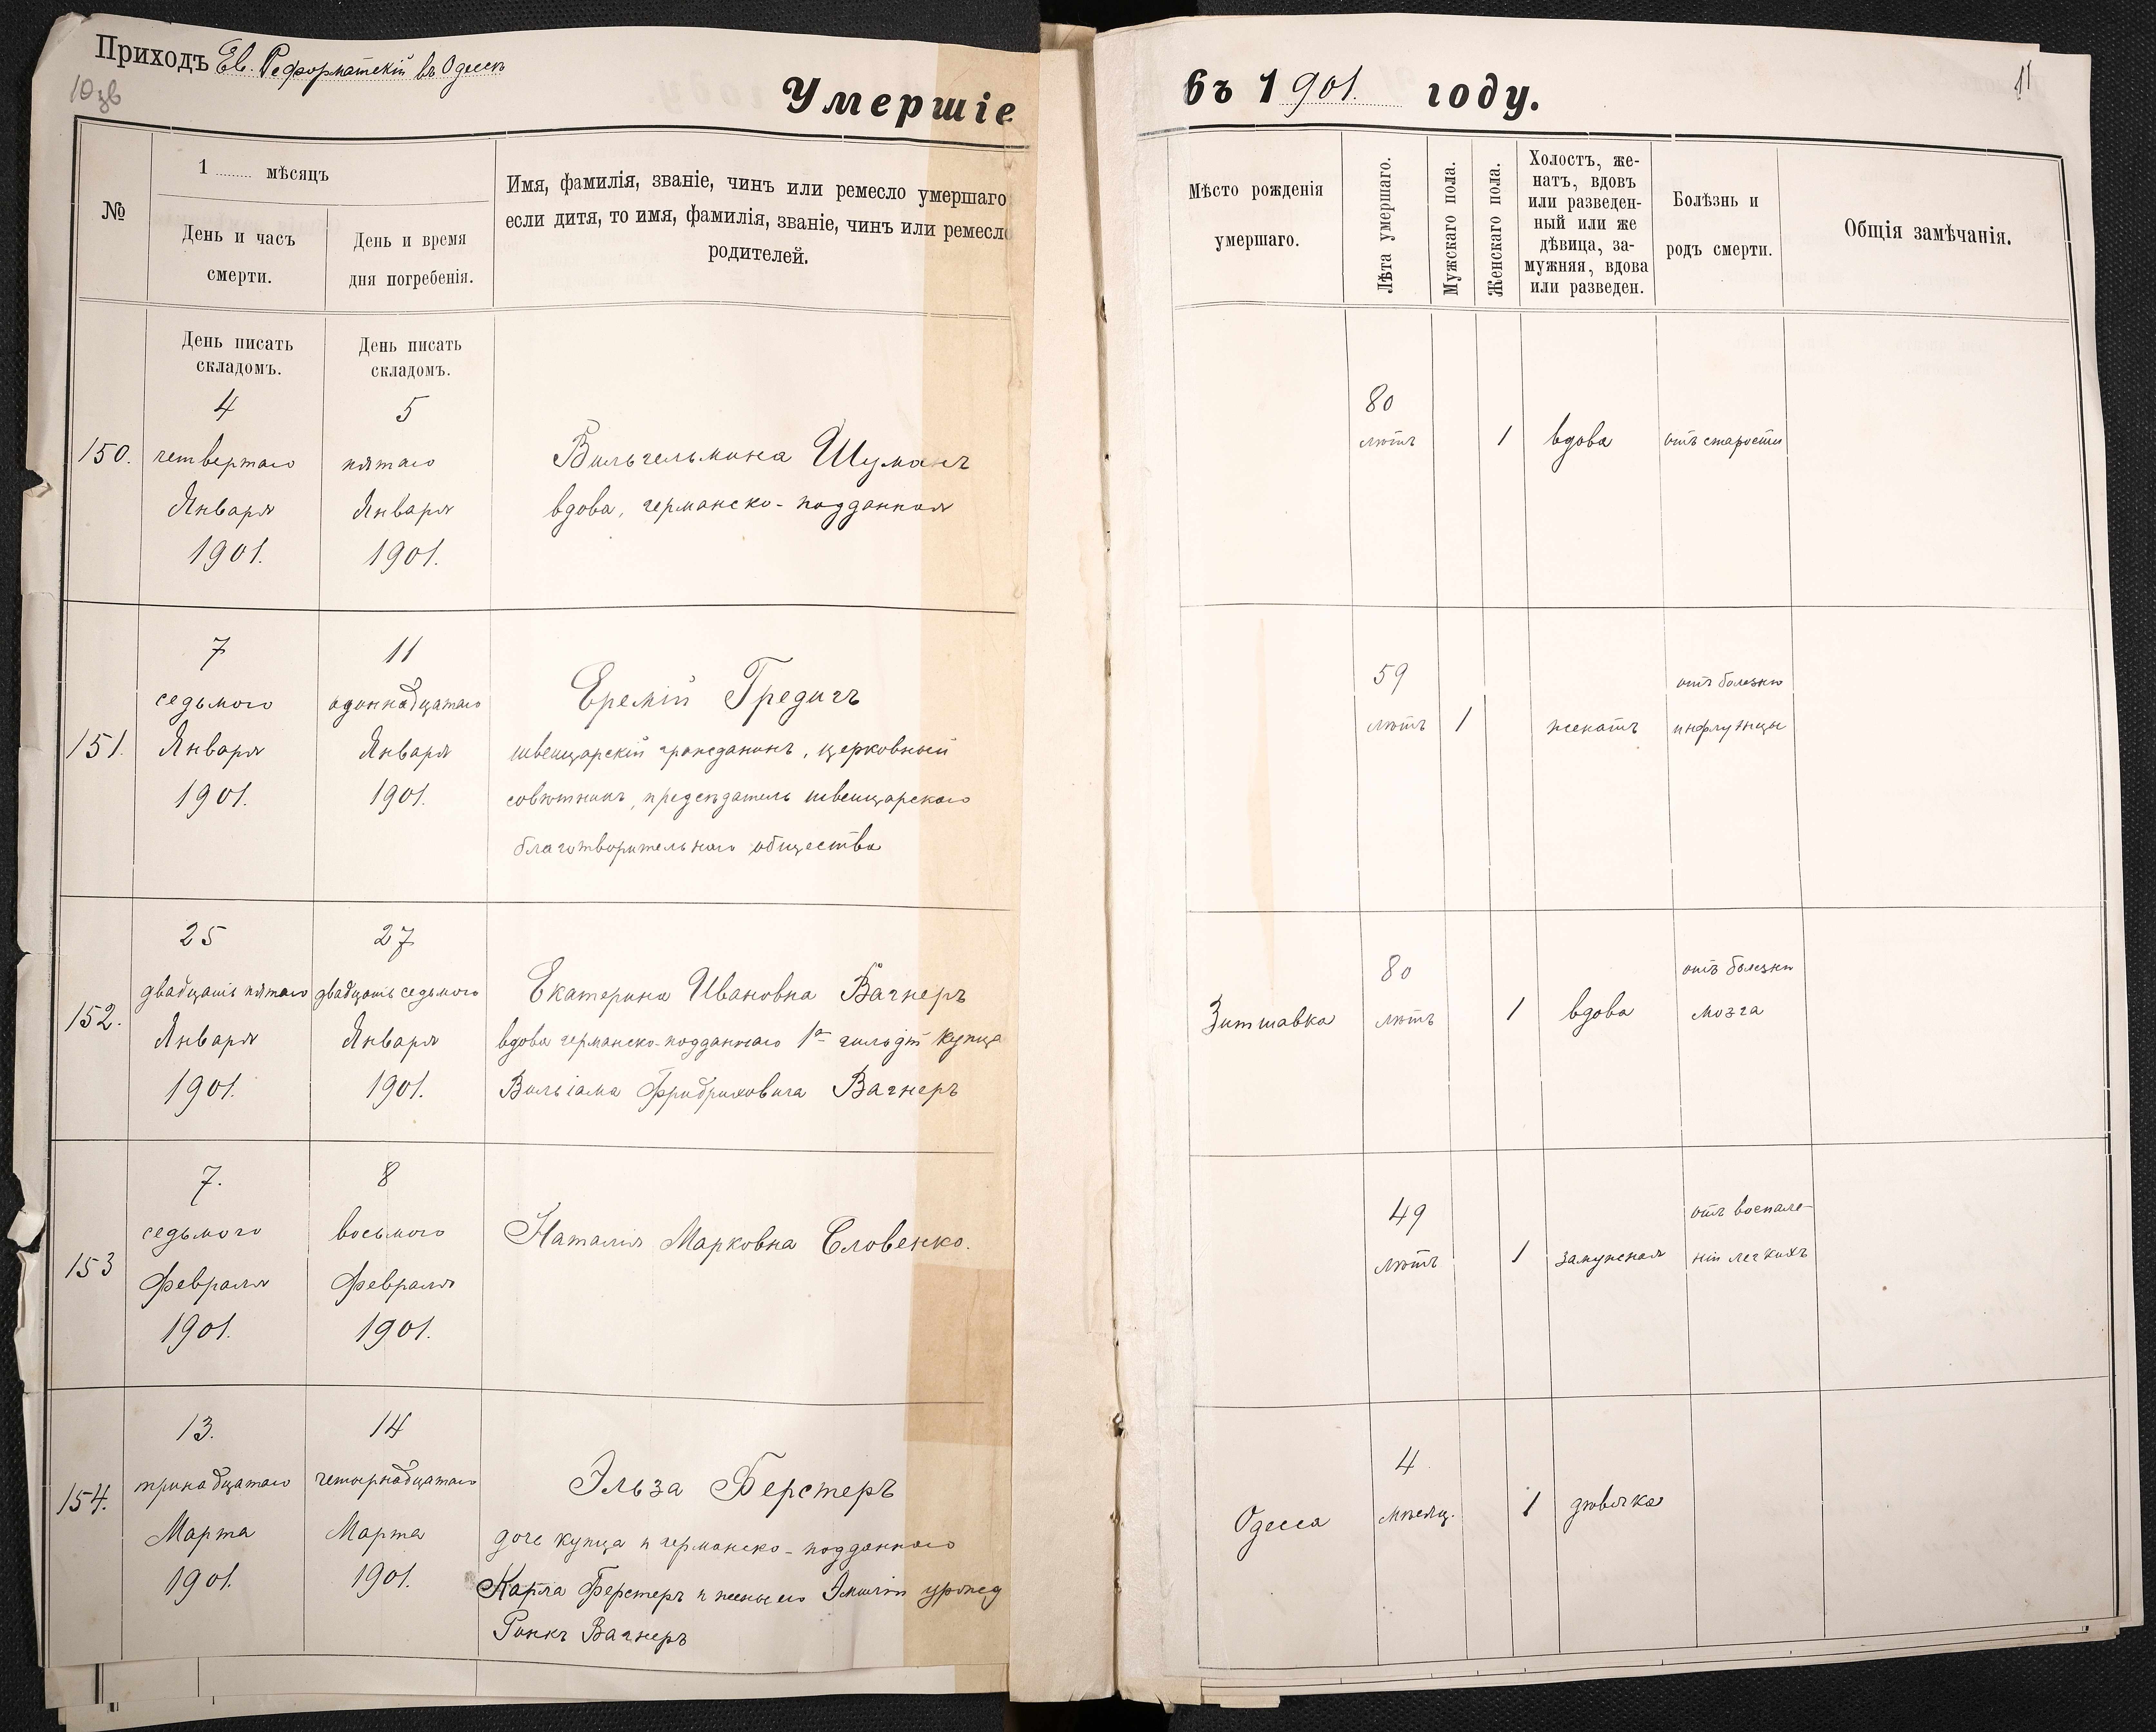 Приходъ Ев. Реформатскій въ Одессѣ
10зв
Умершіе
№
1 ......... мѣсяцъ
День и часъ
смерти.
День и время
дня погребенія.
Имя, фамилія, званіе, чинъ или ремесло умершаго
если дитя, то имя, фамилія, званіе, чинъ или ремесло
родителей.
День писать
складомъ.
День писать
складомъ.
150.
4
четвертаго
Января
1901.
5
пятаго
Января
1901.
Вильгельмина Шуманъ
вдова, германско-подданная
151.
7
седьмого
Января
1901.
11
одиннадцатаго
Января
1901.
Еремій Гредигъ
швейцарскій гражданинъ, церковный
совѣтникъ, предсѣдатель швейцарскаго
благотворительнаго общества
152.
25
двадцать пятаго
Января
1901.
27
двадцать седьмого
Января
1901.
Екатерина Ивановна Вагнеръ
вдова германско-подданнаго 1ᵃ гильдіи купца
Вильіама Фридриховича Вагнеръ
153
7.
седьмого
Февраля
1901.
8
восьмого
Февраля
1901.
Наталія Марковна Словенко.
154.
13.
тринадцатаго
Марта
1901.
14
четырнадцатаго
Марта
1901.
Эльза Ферстеръ
дочь купца и германско-подданнаго
Карла Ферстеръ и жены его Эмиліи урожд
Вагнеръ
въ 1901. году.
11
Мѣсто рожденія
умершаго.
Лѣта умершаго.
Мужскаго пола.
Женскаго пола.
Холостъ, же-
натъ, вдовъ
или разведен-
ный или же
дѣвица, за-
мужняя, вдова
или разведен.
Болѣзнь и
родъ смерти.
Общія замѣчанія.
80
лѣтъ
1
вдова
отъ старости
59
лѣтъ
1
женатъ
отъ болезни
инфлуэнцы
Зитшавка
80
лѣтъ
1
вдова
отъ болезни
мозга
49
лѣтъ
1
замужная
отъ воспале-
нія легкихъ
Одесса
4
мѣсяц.
1
дѣвичка